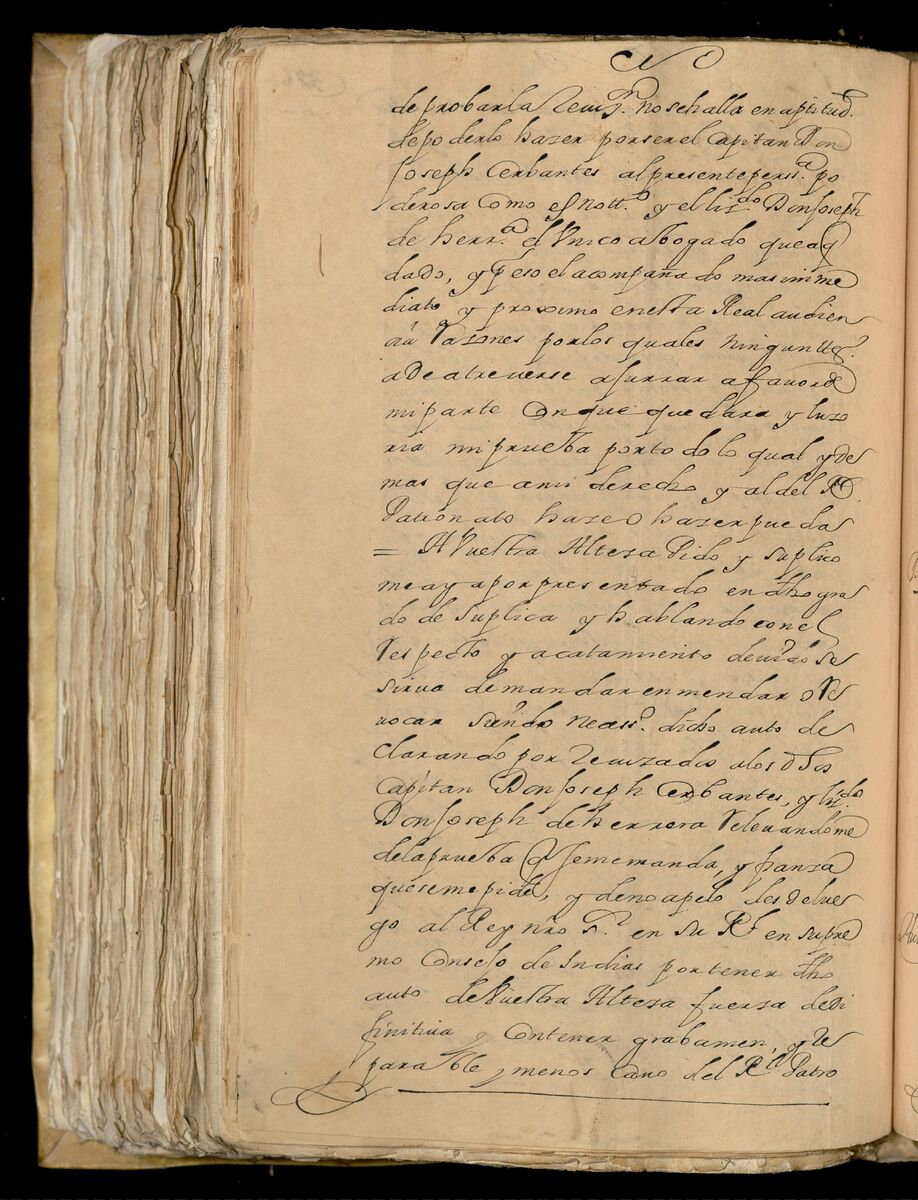 de probar la recuz.on no se halla en aptitud.
de poderlo hazer por ser el Capitan Don
Joseph Cerbantes al presente pers.a po
derosa como es nott.o y el liz.do Don Joseph
de herr.a el Vnico abogado que a q
dado, y p.r eso el acompañado mas inme
diato y proximo en esta Real audien
cia Razones por los quales ningun
a de atreuerse a jurar a favor de
mi parte Con que quedara yluso
ria mi prueba por todo lo qual y de
mas que a mi derecho y al del R.l
Patronato haze o hazer pueda
= A Vuestra Alteza Pido y suplico
me aya por presentado en dho gra
do de suplica y hablando con el
Respecto y acatamiento deuido se
sirua de mandar enmendar o Re
vocar siendo necess.o dicho auto de
clarando por recuzados a los dhos
Capitan Don Joseph Cerbantes, y liz.do
Don Joseph de herrera Releuandome
de la prueba q se me manda, y fianza
que se me pide, y de no apelo desde lue
go al Rey nro S.r en su R.l en supre
mo Consejo de Indias por tener dho
auto de Vuestra Alteza fuerza de di
finitiua y Contener grabamen, yrre
parable, menos cauo del R.l Patro